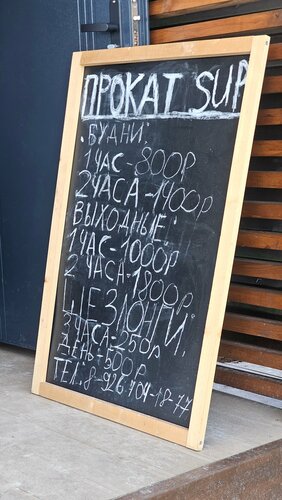 ПРОКАТ SUP
.БУДНИ:
1 ЧАС-800Р
2 ЧАСА-1400р
ВЫХОДНЫЕ:
1 ЧАС-1000Р
2 ЧАСА-1800р
ШЕЗЛОНГИ:
3 ЧАСА-250р
ДЕНЬ-500р
ТЕЛ: 8-926-704-18-77